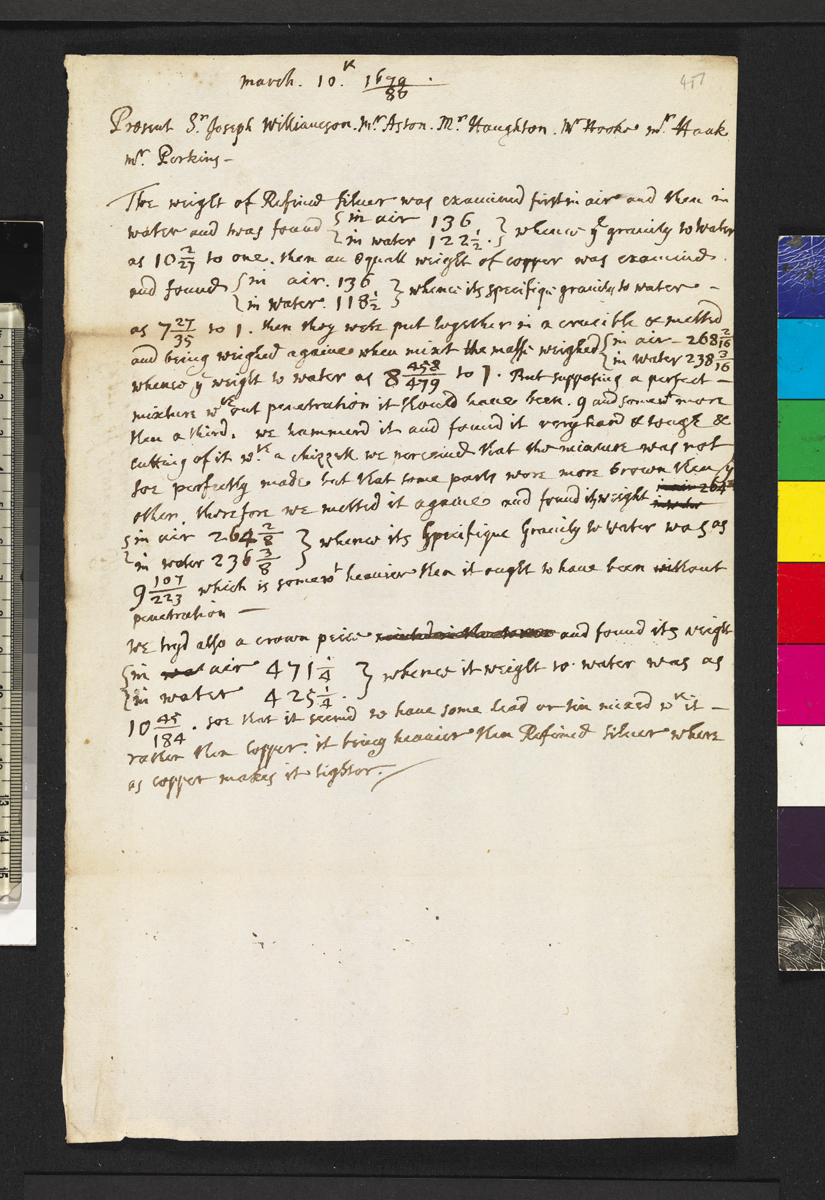 march. 10.th 1679/80.
457
Present Sr. Joseph Williamson. Mr. Aston. Mr. Haughton. Mr Hooke mr. Haak
mr. Perkins-
The weight of Refined silver was examined first in air and then in
water and was found { in air 136 / in water 122 1/2. } whence ye gravity to water
as 10 2/27 to one. then an equall weight of copper was examined.
and found { in air. 136 / in water. 118 1/2 } whence its specifique gravity to water -
as 7 27/35 to 1. then they were put together in a crucible & melted
and being weighed againe when mixt the masse weighed { in air - 268 2/16 / in water 238 3/16
whence ye weight to water as 8 458/479 to 1. But supposing a perfect -
mixture wthout penetration it should have been. 9 and somewt more
then a third. we hammerd it and found it very hard & tough &
cutting of it wth a chizzell we perceiued that the mixture was not
soe perfectly made but that some parts were more brown then ye
other. therefore we melted it againe and found its weight in air 264
{ in air 264 2/8 / in water 236 3/8 } whence its Specifique Gravity to water was as
9 107/223 which is somewt heavier then it ought to have been without
penetration —
we tryd also a crown peice and found its weight
{ in air 471 1/4 / in water 425 1/4. } whence it weight to water was as
10 45/184. soe that it seemd to have some lead or tin mixed wth it -
rather then copper. it being heavier then Refined silver where
as copper makes it lighter.